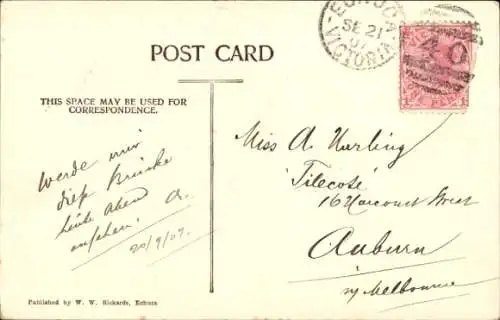 POST CARD
THIS SPACE MAY BE USED FOR
CORRESPONDENCE.
Werde mir
diese Brücke
heute Abend
ansehen. A.
20/9/07.
ECHUCA
SE 21
07
VICTORIA
Miss A Kurling
"Tilecote"
162 Harcourt Street
Auburn
nr Melbourne
Published by W. W. Rickards, Echuca